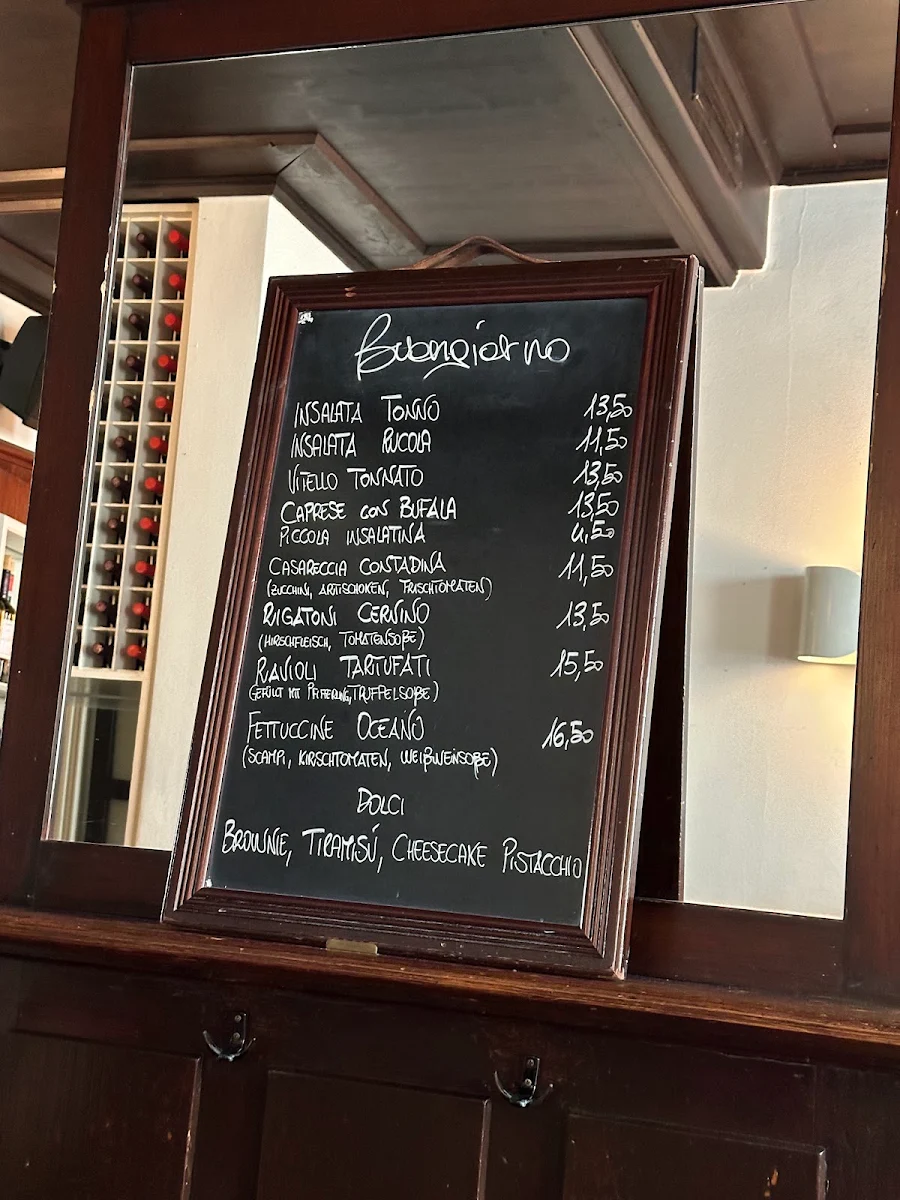 Buongiorno
INSALATA TONNO 13,50
INSALATA RUCOLA 11,50
VITELLO TONNATO 13,50
CAPRESE CON BUFALA 13,50
PICCOLA INSALATINA 4,50
CASARECCIA CONTADINA 11,50
(ZUCCHINI, ARTISCHOKEN, FRISCHTOMATEN)
RIGATONI CERVINO 13,50
(HIRSCHFLEISCH, TOMATENSOßE)
RAVIOLI TARTUFATI 15,50
(GEFÜLLT MIT PFIFFERLING, TRÜFFELSOßE)
FETTUCCINE OCEANO 16,50
(SCAMPI, KIRSCHTOMATEN, WEIßWEINSOßE)
DOLCI
BROWNIE, TIRAMISÚ, CHEESECAKE PISTACCHIO